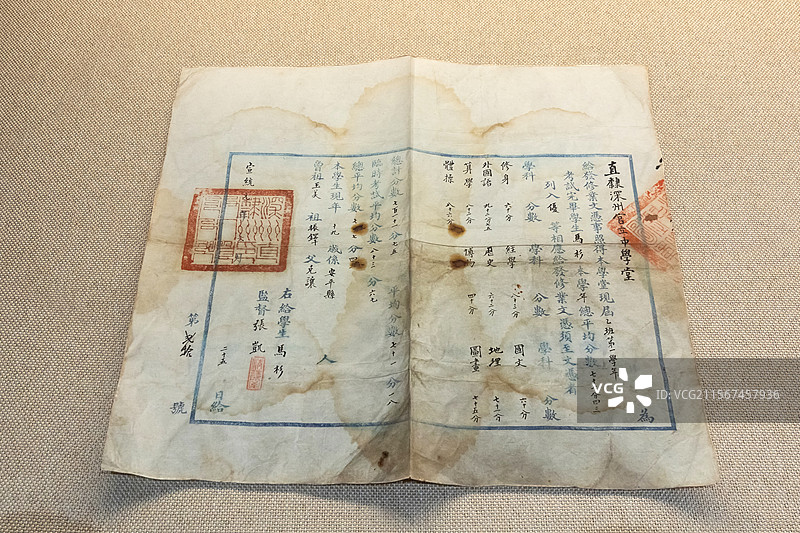 直隸深州官立中學堂
為
給發修業文憑事照得本學堂現屆乙班第一學年
考試完畢學生馬杉本學年總平均分數七十
列入優等相應給發修業文憑須至文憑者
學科 分數 學科 分數 學科 分數
修身 六十分 經學 六十三分 國文 六十分
外國語 九十六分五 歷史 六十三分 地理 七十三分
算學 八十三分 博物 四十分 圖畫 七十五分
體操 八十六分
總計分數 七百一十一分七五 平均分數 七十一分一八
臨時考試平均分數 八十三分六七
總平均分數
本學生現年十九歲係安平縣人
曾祖玉美 祖振鐸 父克讓
右給學生馬杉
監督張凱
宣統
二十五日給
第 號
VCG
VCG.COM
ID: VCG211567457936